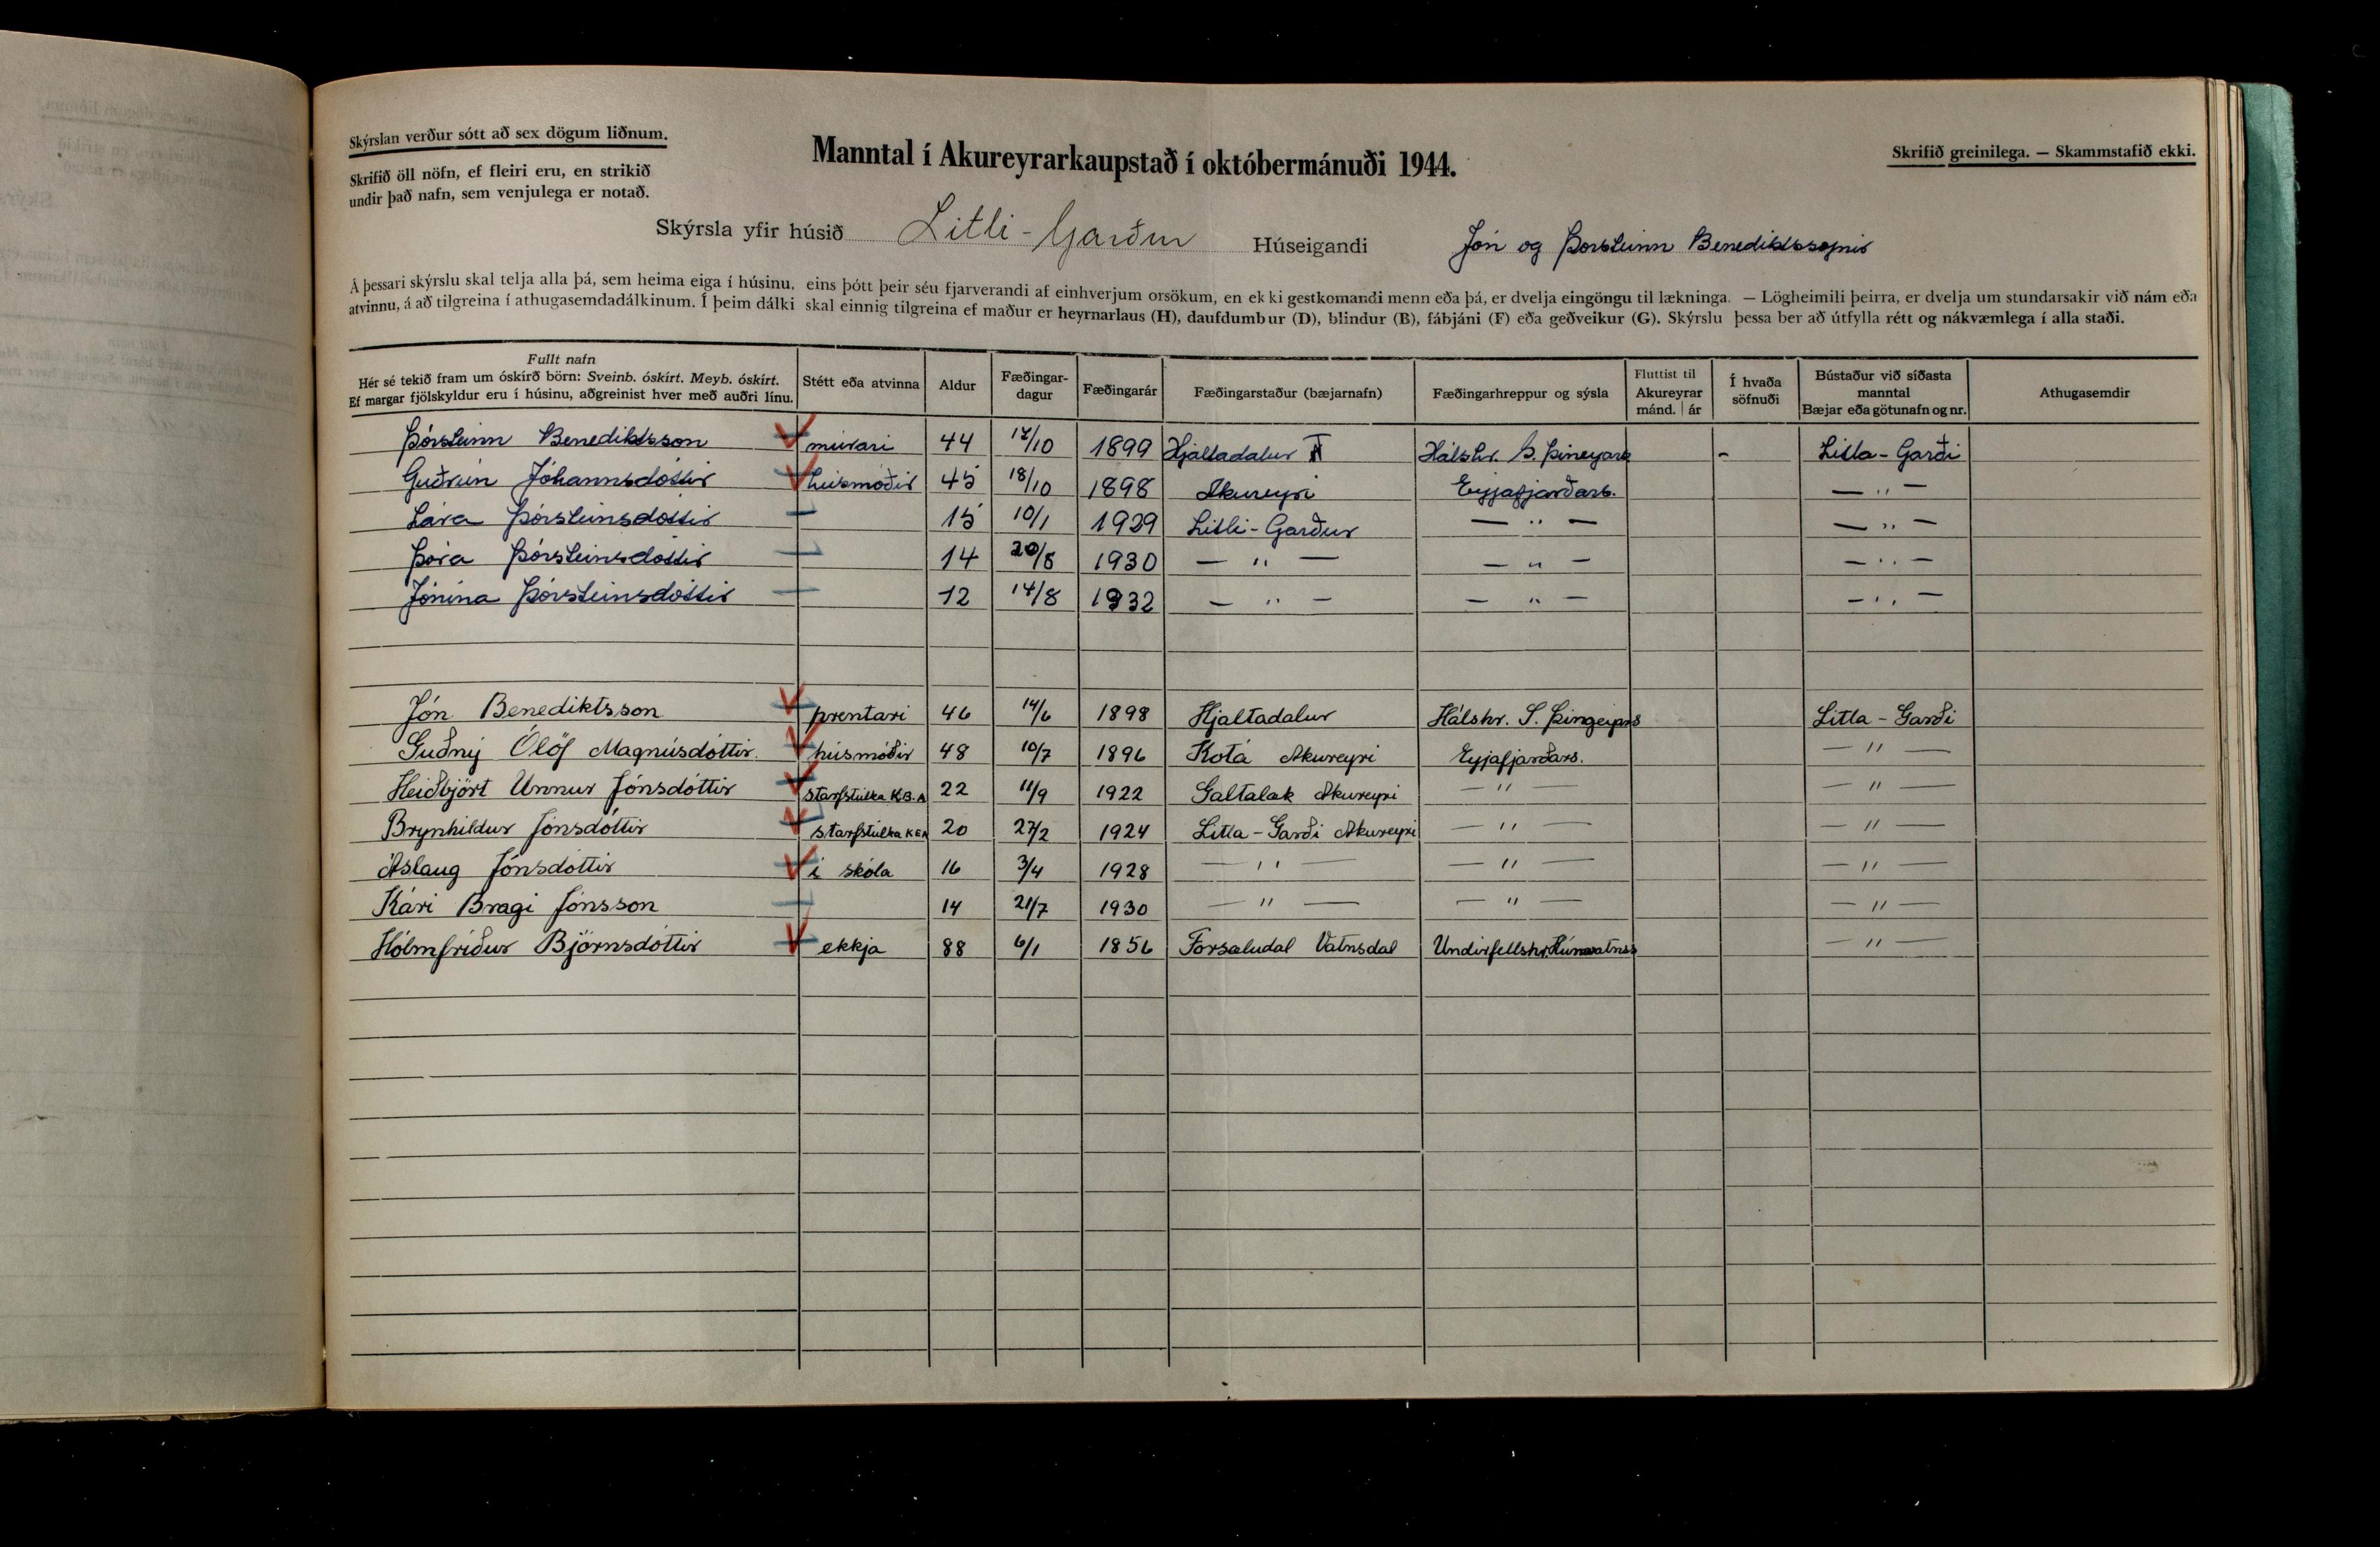 Skýrslan verður sótt að sex dögum liðnum.
Skrifið öll nöfn, ef fleiri eru, en strikið
undir það nafn, sem venjulega er notað.
Manntal í Akureyrarkaupstað í októbermánuði 1944.
Skrifið greinilega. — Skammstafið ekki.
Skýrsla yfir húsið Litli-Garður Húseigandi Jón og Þorsteinn Benediktssynir
Á þessari skýrslu skal telja alla þá, sem heima eiga í húsinu, eins þótt þeir séu fjarverandi af einhverjum orsökum, en ekki gestkomandi menn eða þá, er dvelja eingöngu til lækninga. — Lögheimili þeirra, er dvelja um stundarsakir við nám eða
atvinnu, á að tilgreina í athugasemdadálkinum. Í þeim dálki skal einnig tilgreina ef maður er heyrnarlaus (H), daufdumbur (D), blindur (B), fábjáni (F) eða geðveikur (G). Skýrslu þessa ber að útfylla rétt og nákvæmlega í alla staði.
Fullt nafn
Hér sé tekið fram um óskírð börn: Sveinb. óskírt. Meyb. óskírt.
Ef margar fjölskyldur eru í húsinu, aðgreinist hver með auðri línu.
Stétt eða atvinna
Aldur
Fæðingar-
dagur
Fæðingarár
Fæðingarstaður (bæjarnafn)
Fæðingarhreppur og sýsla
Fluttist til
Akureyrar
mánd. | ár
Í hvaða
söfnuði
Bústaður við síðasta
manntal
Bæjar eða götunafn og nr.
Athugasemdir
Þórsteinn Benediktsson múrari 44 /10 1899 Hjaltadalur Hálshr. S. Þineyars - Litla-Garði
Guðrún Jóhannsdóttir húsmóðir 45 18/10 1898 Akureyri Eyjafjarðars. — " —
Lára Þórsteinsdóttir 15 10/1 1929 Litli-Garður — " — — " —
Þóra Þórsteinsdóttir 14 20/8 1930 — " — — " — — " —
Jónína Þórsteinsdóttir 12 14/8 1932 — " — — " — — " —
Jón Benediktsson prentari 46 14/6 1898 Hjaltadalur Hálshr. S. Þingeyars Litla-Garði
Guðný Ólöf Magnúsdóttir. húsmóðir 48 10/7 1896 Kotá Akureyri Eyjafjarðars. — " —
Heiðbjört Unnur Jónsdóttir starfstúlka K.B.A 22 11/9 1922 Galtalæk Akureyri — " — — " —
Brynhildur Jónsdóttir starfstúlka KEA 20 27/2 1924 Litla-Garði Akureyri — " — — " —
Áslaug Jónsdóttir í skóla 16 3/4 1928 — " — — " — — " —
Kári Bragi Jónsson 14 21/7 1930 — " — — " — — " —
Hólmfríður Björnsdóttir ekkja 88 6/1 1856 Forsæludal Vatnsdal Undirfellshr. Húnavatnss — " —